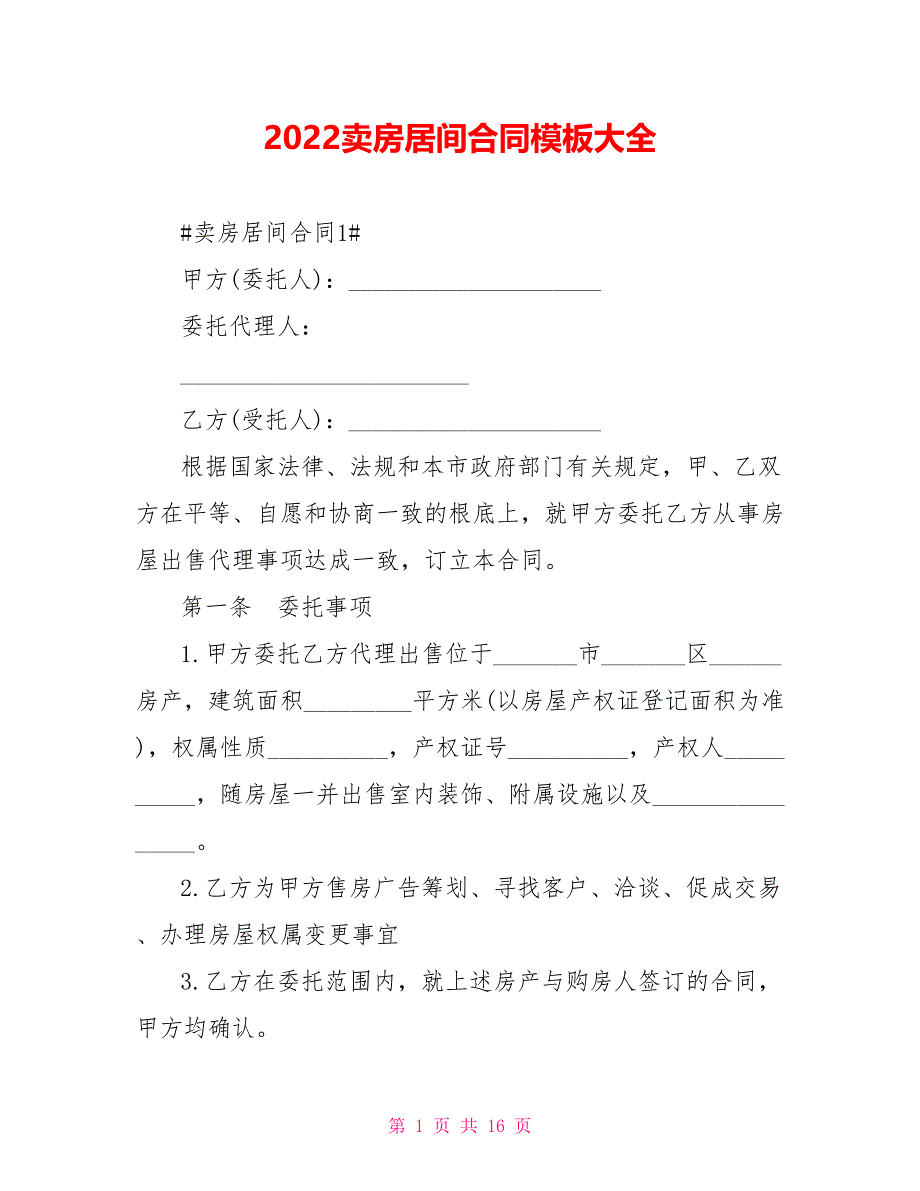 2022卖房居间合同模板大全
#卖房居间合同1#
甲方(委托人)：_____________________
委托代理人：
________________________
乙方(受托人)：_____________________
根据国家法律、法规和本市政府部门有关规定，甲、乙双
方在平等、自愿和协商一致的根底上，就甲方委托乙方从事房
屋出售代理事项达成一致，订立本合同。
第一条　委托事项
1.甲方委托乙方代理出售位于_______市_______区______
房产，建筑面积_________平方米(以房屋产权证登记面积为准
)，权属性质__________，产权证号__________，产权人_____
_____，随房屋一并出售室内装饰、附属设施以及___________
_____。
2.乙方为甲方售房广告筹划、寻找客户、洽谈、促成交易
、办理房屋权属变更事宜
3.乙方在委托范围内，就上述房产与购房人签订的合同，
甲方均确认。
第 1 页 共 16 页